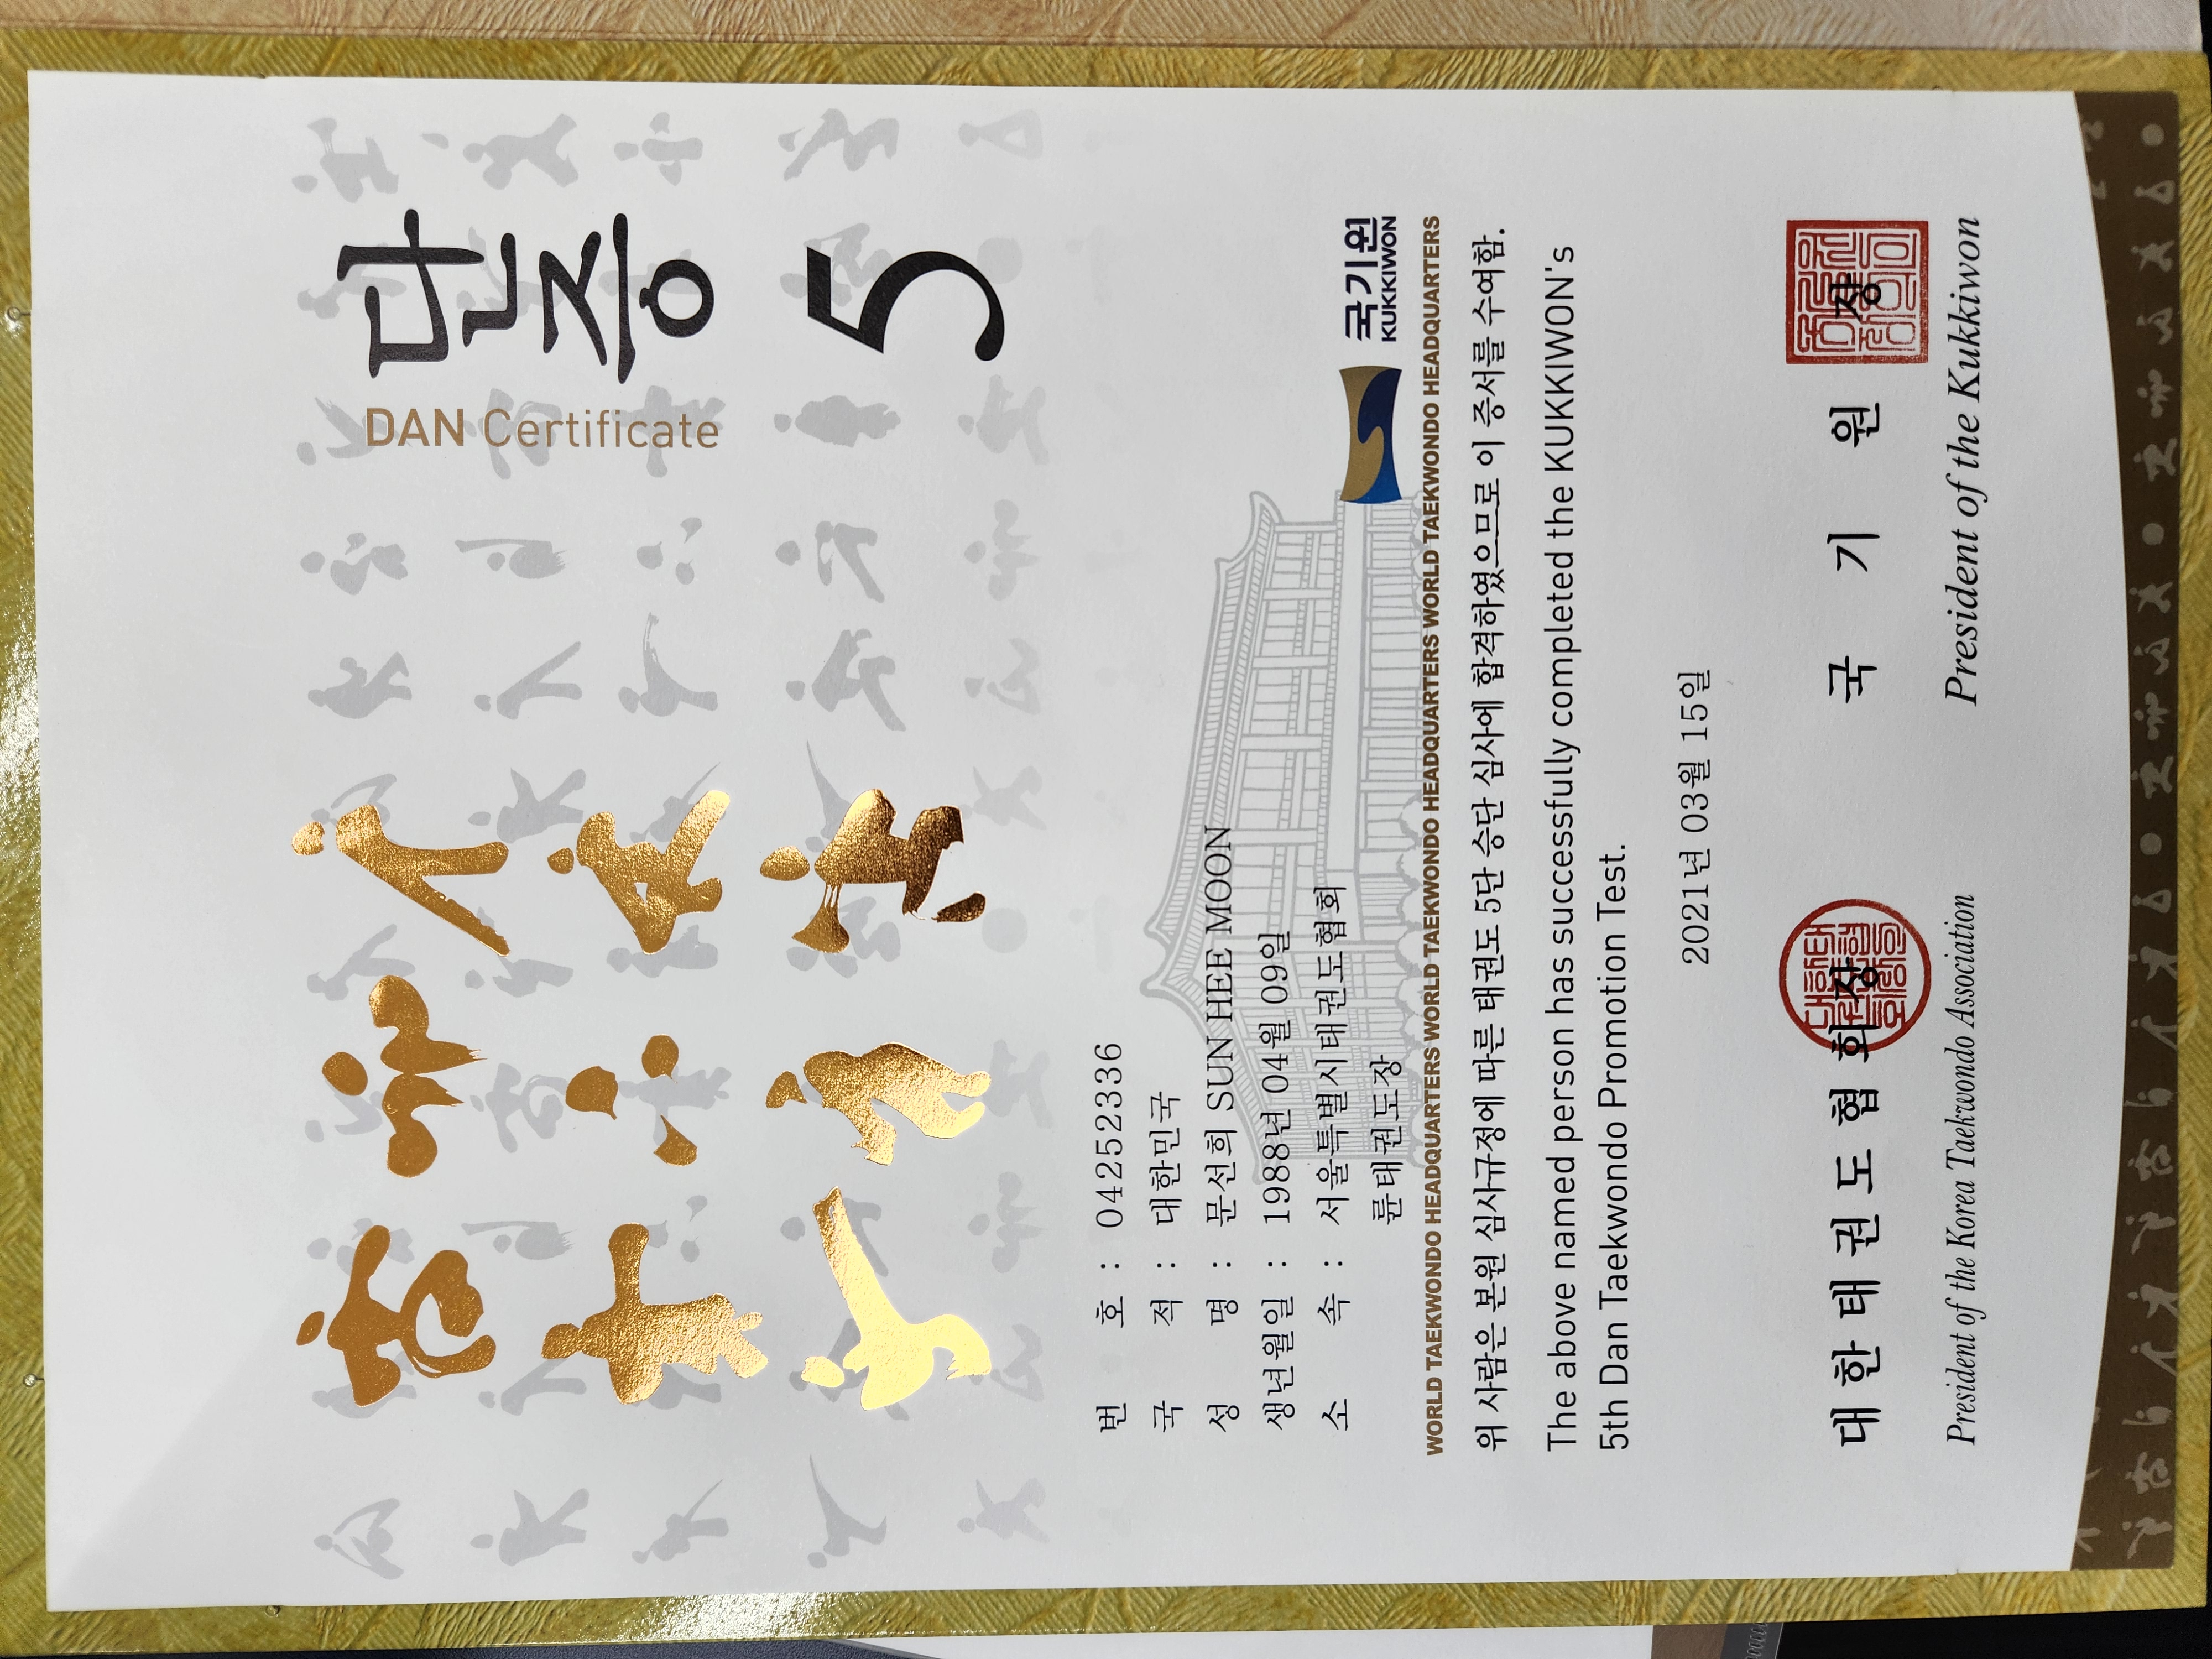 단증
DAN Certificate
5
번 호 : 04252336
국 적 : 대한민국
성 명 : 문선희 SUN HEE MOON
생년월일 : 1988년 04월 09일
소 속 : 서울특별시태권도협회
룬태권도장
국기원
KUKKIWON
WORLD TAEKWONDO HEADQUARTERS WORLD TAEKWONDO HEADQUARTERS WORLD TAEKWONDO HEADQUARTERS WORLD TAEKWONDO HEADQUARTERS WORLD TAEKWONDO HEADQUARTERS
위 사람은 본원 심사규정에 따른 태권도 5단 승단 심사에 합격하였으므로 이 증서를 수여함.
The above named person has successfully completed the KUKKIWON's
5th Dan Taekwondo Promotion Test.
2021년 03월 15일
대한태권도협회장 국 기 원 장
President of the Korea Taekwondo Association President of the Kukkiwon